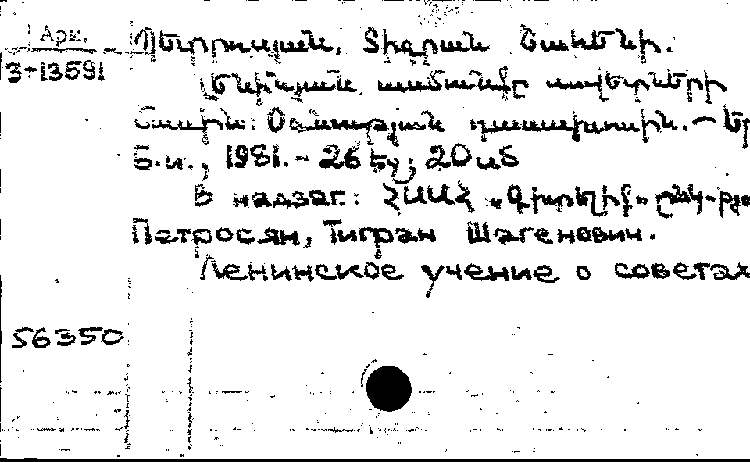 Арм.
Պետրոսյան, Տիգրան Շահենի.
3-13591
Լենինյան ուսմունքը սովետների
մասին: Օգնություն դասախոսին. — Եր
Б.и., 1981.- 26 էջ; 20 սմ
В надзаг.: ՀՍՍՀ «Գիտելիք» ընկ-
Петросян, Тигран Шагенович.
Ленинское учение о советах
56350